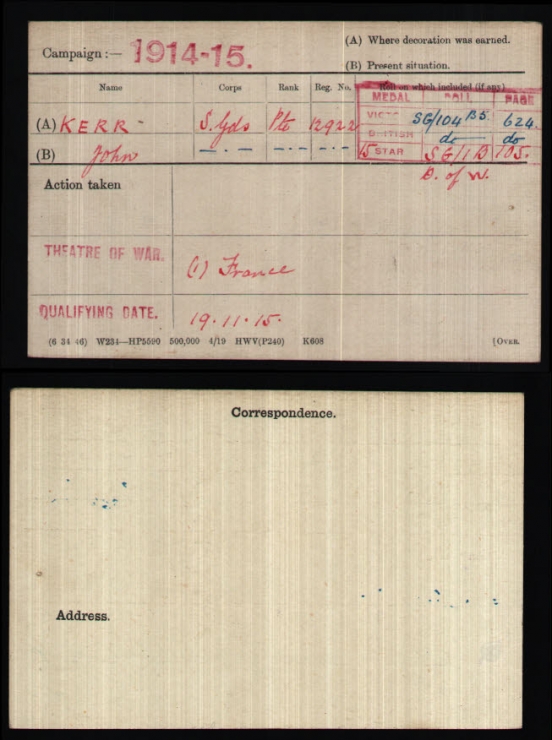 Campaign :— 1914-15.
(A) Where decoration was earned.
(B) Present situation.
Name Corps Rank Reg. No. Roll on which included (if any)
MEDAL ROLL PAGE
(A) KERR S. Gds Pte 12922 VICTO SG/104 B5. 624
BRITISH do do
(B) John — · — — · — — · — 15 STAR SG/1B 105.
D. of W.
Action taken
THEATRE OF WAR. (1) France
QUALIFYING DATE. 19.11.15.
(6 34 46) W234—HP5590 500,000 4/19 HWV(P240) K608 [OVER.
Correspondence.
Address.